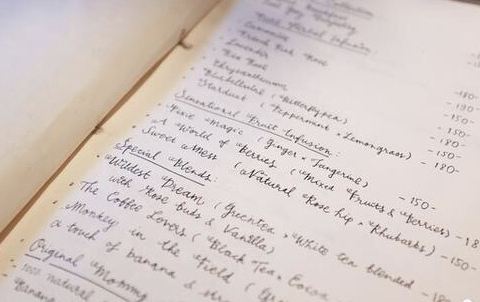 Collection
Pure Herbal Infusion:
Camomile
French Pink Rose
Lavender
Tea Rose
Chrysanthemum -180-
Bluebellvital (Butterflypea) -150-
Stardust (Peppermint + Lemongrass) -180-
Sensational Fruit Infusion:
Pixie Magic (Ginger + Tangerine) -150-
A World of Berries (Mixed Fruits & Berries) -180
Sweet Mess (Natural Rose hip + Rhubarbs) -150-
Special Blends:
Wildest Dream (Greentea + White tea blended -180
with Rose buds & Vanilla)
The Coffee Lovers (Black Tea + Cocoa
Monkey in the Field (
a touch of banana &
Original Mommy
100% natural
Banana